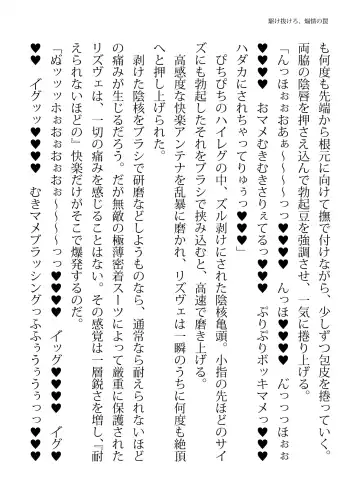 駆け抜けろ、煽情の罠
も何度も先端から根元に向けて撫で付けながら、少しずつ包皮を捲っていく。
両脇の陰唇を押さえ込んで勃起豆を強調させ、一気に捲り上げる。
「んっほぉぉおあぁ～～～～～っっ♥♥♥♥　んっほ♥♥♥♥　んっっっほぉぉ
♥♥♥♥　おマメむきむきさりぇてるっ♥♥♥♥　ぷりぷりボッキマメっ♥♥♥
ハダカにされちゃってりゅぅっ♥♥♥♥」
ぴちぴちのハイレグの中、ズル剥けにされた陰核亀頭。小指の先ほどのサイ
ズにも勃起したそれをブラシで挟み込むと、高速で磨き上げる。
高感度な快楽アンテナを乱暴に磨かれ、リズヴェは一瞬のうちに何度も絶頂
へと押し上げられた。
剥けた陰核をブラシで研磨などしようものなら、通常なら耐えられないほど
の痛みが生じるだろう。だが無敵の極薄密着スーツによって厳重に保護された
リズヴェは、一切の痛みを感じることはない。その感覚は一層鋭さを増し、『耐
えられないほどの』快楽だけがそこで爆発するのだ。
「ぬッッッホぉおぉおぉおぉ～～～～っっ♥♥♥♥　イッグ♥♥♥♥　イグ♥
♥♥♥　イグッッ♥♥♥♥　むきマメブラッシングっふふぅうぅうぅっっ♥♥♥♥